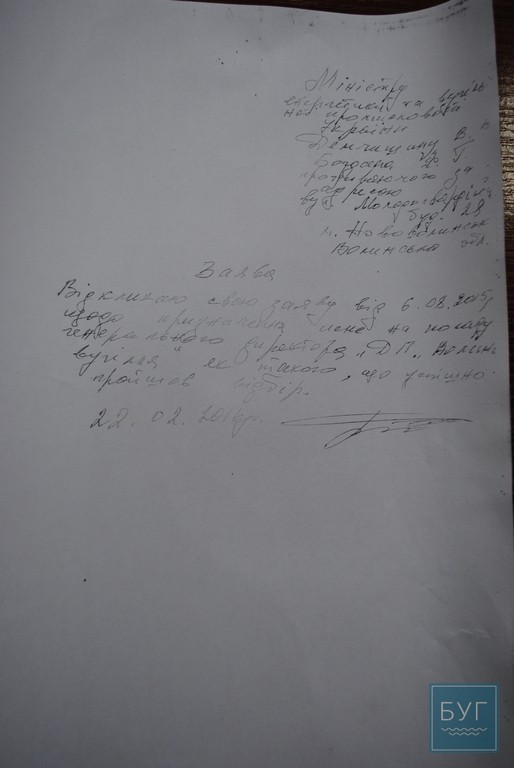 Міністру
енергетики та вугіль
ної промисловості
України
Демчишину В. В
Богдана
проживаючого за
адресою
вул Молодогвардій
буд. 29
м. Нововолинськ
Волинська обл.
Заява
Відкликаю свою заяву від 6.08.2015р
щодо призначення мене на посаду
генерального директора „ДП„ Волинь
вугілля" як такого, що успішно
пройшов відбір.
22.02.2016р.
БУГ